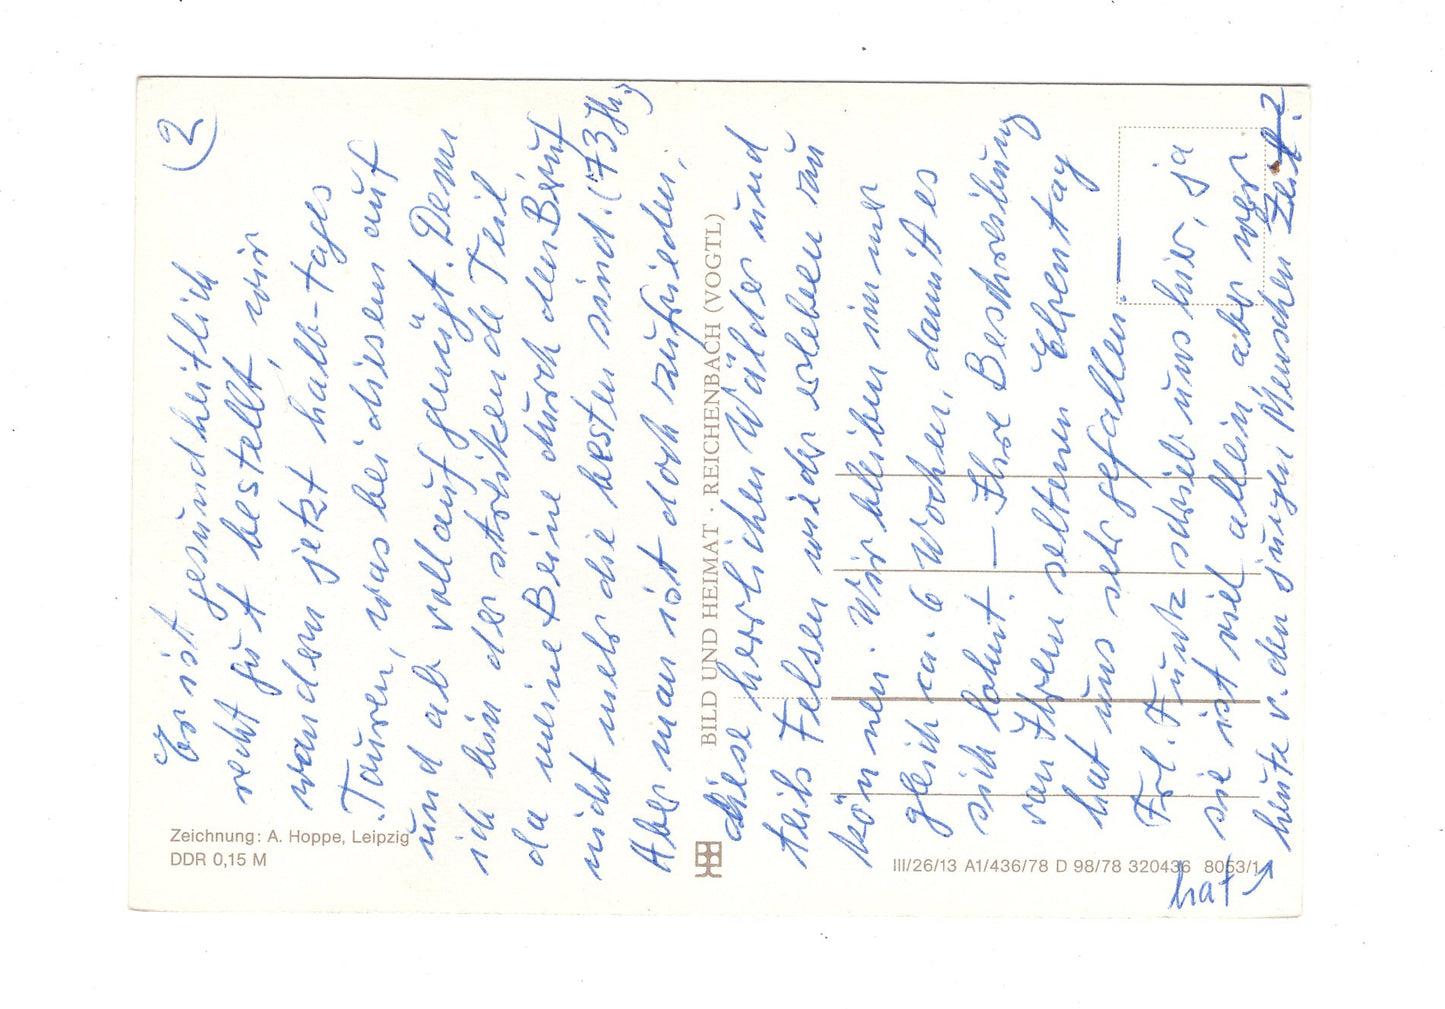 (2)
Er ist gesundheitlich
recht gut bestellt, wir
wandern jetzt halb-tages
Touren, was bei diesem auf
und ab vollauf genügt. Denn
ich bin der strikende Teil
da meine Beine durch den Beruf
nicht mehr die besten sind. (73 Jhr)
Aber man ist doch zufrieden,
diese herrlichen Wälder und
teils Felsen wieder erleben zu
können. Wir bleiben immer
gleich ca. 6 Wochen, damit es
sich lohnt. — Ihre Beschreibung
von Ihrem seltenen Ehrentag
hat uns sehr gefallen. —
Frl. Funk schrieb uns hier, ja
sie ist viel allein, aber wer
hat → heute v. den jungen Menschen Zeit.?
BILD UND HEIMAT · REICHENBACH (VOGTL)
Zeichnung: A. Hoppe, Leipzig
DDR 0,15 M
III/26/13 A1/436/78 D 98/78 320436 8053/1